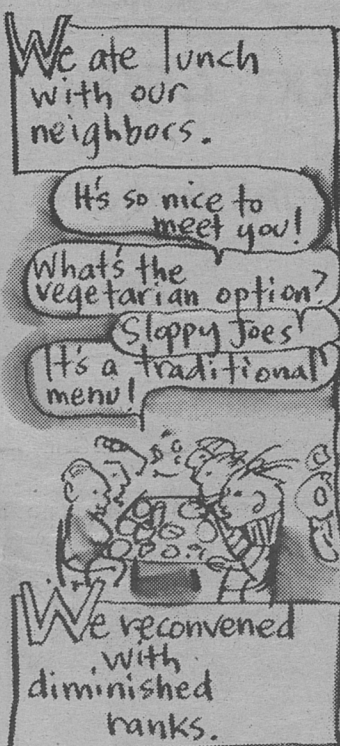 We ate lunch
with our
neighbors.
It's so nice to
meet you!
What's the
vegetarian option?
Sloppy Joes
It's a traditional
menu!
We reconvened
with
diminished
ranks.